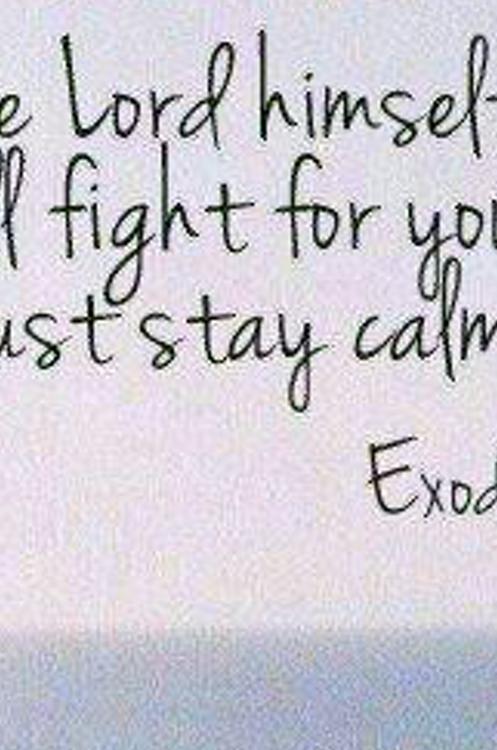 e Lord himself
ll fight for you
ust stay calm
Exod